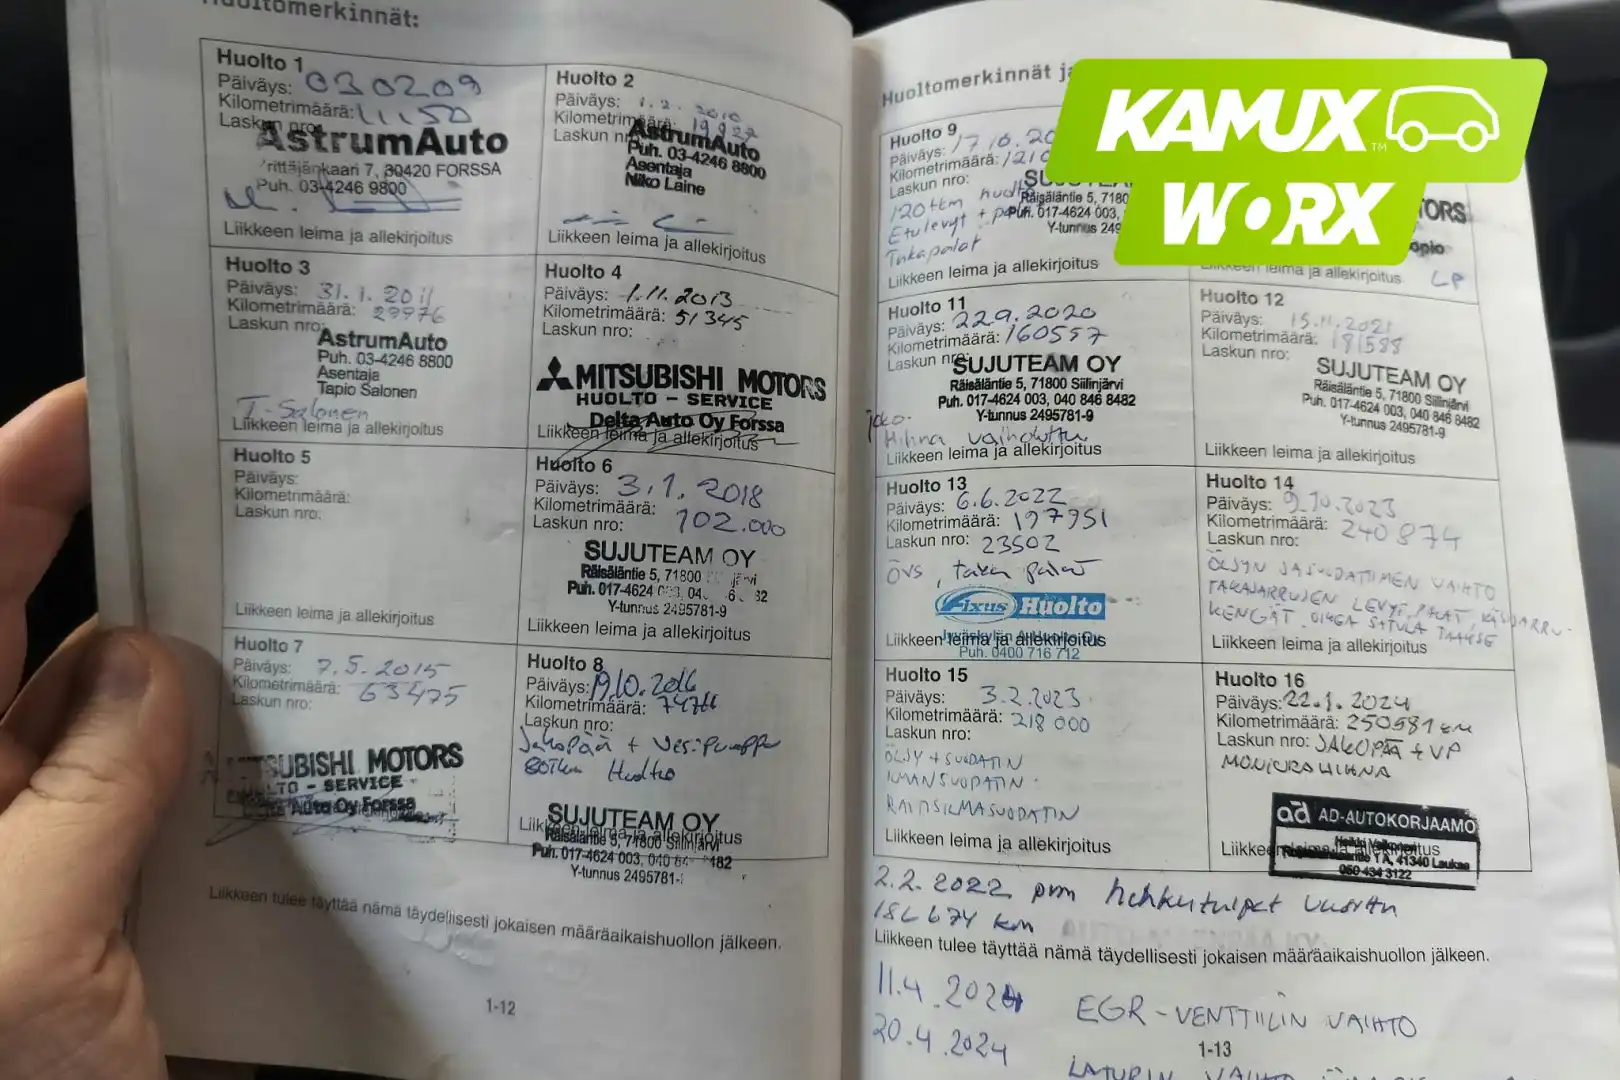 Huoltomerkinnät:
Huolto 1
Päiväys: 030209
Kilometrimäärä: 11150
Laskun nro:
AstrumAuto
Yrittäjänkaari 7, 30420 FORSSA
Puh. 03-4246 9800
Liikkeen leima ja allekirjoitus
Huolto 2
Päiväys: 1.2.2010
Kilometrimäärä: 19927
Laskun nro:
AstrumAuto
Puh. 03-4246 8800
Asentaja
Niko Laine
Liikkeen leima ja allekirjoitus
Huolto 3
Päiväys: 31.1.2011
Kilometrimäärä: 29976
Laskun nro:
AstrumAuto
Puh. 03-4246 8800
Asentaja
Tapio Salonen
T-Salonen
Liikkeen leima ja allekirjoitus
Huolto 4
Päiväys: 1.11.2013
Kilometrimäärä: 51345
Laskun nro:
MITSUBISHI MOTORS
HUOLTO - SERVICE
Delta Auto Oy Forssa
Liikkeen leima ja allekirjoitus
Huolto 5
Päiväys:
Kilometrimäärä:
Laskun nro:
Liikkeen leima ja allekirjoitus
Huolto 6
Päiväys: 3.1.2018
Kilometrimäärä: 102.000
Laskun nro:
SUJUTEAM OY
Räisäläntie 5, 71800
Puh. 017-4624
Y-tunnus 2495781-9
Liikkeen leima ja allekirjoitus
Huolto 7
Päiväys: 7.5.2015
Kilometrimäärä: 63475
Laskun nro:
MITSUBISHI MOTORS
HUOLTO - SERVICE
Delta Auto Oy Forssa
Huolto 8
Päiväys: 19.10.2016
Kilometrimäärä:
Laskun nro:
Jakopää + Vesipumppu
80tkm Huolto
SUJUTEAM OY
Liikkeen leima ja allekirjoitus
Räisäläntie 5, 71800 Siilinjärvi
Puh. 017-4624 003, 040
Y-tunnus 2495781-
Liikkeen tulee täyttää nämä täydellisesti jokaisen määräaikaishuollon jälkeen.
1-12
Huoltomerkinnät
Huolto 9
Päiväys: 17.10.20
Kilometrimäärä:
Laskun nro:
120tkm huolto
Etulevyt +
Takapalat
SUJUTEAM
Räisäläntie 5, 7180
Puh. 017-4624 003,
Y-tunnus 249
Liikkeen leima ja allekirjoitus
KAMUX
WORX
TORS
Liikkeen leima ja allekirjoitus
LP
Huolto 11
Päiväys: 22.9.2020
Kilometrimäärä: 160557
Laskun nro:
SUJUTEAM OY
Räisäläntie 5, 71800 Siilinjärvi
Puh. 017-4624 003, 040 846 8482
Y-tunnus 2495781-9
jako-
Hihna vaihdettu
Liikkeen leima ja allekirjoitus
Huolto 12
Päiväys: 15.11.2021
Kilometrimäärä: 181588
Laskun nro:
SUJUTEAM OY
Räisäläntie 5, 71800 Siilinjärvi
Puh. 017-4624 003, 040 846 8482
Y-tunnus 2495781-9
Liikkeen leima ja allekirjoitus
Huolto 13
Päiväys: 6.6.2022
Kilometrimäärä: 197951
Laskun nro: 23502
ÖVS, taka palat
Fixus Huolto
Liikkeen leima ja allekirjoitus
Puh. 0400 716 712
Huolto 14
Päiväys: 9.10.2023
Kilometrimäärä: 240874
Laskun nro:
ÖLJYN JA SUODATTIMEN VAIHTO
TAKAJARRUJEN LEVYT, PALAT, KÄSIJARRU-
KENGÄT, OIKEA SATULA TAAKSE
Liikkeen leima ja allekirjoitus
Huolto 15
Päiväys: 3.2.2023
Kilometrimäärä: 218 000
Laskun nro:
ÖLJY + SUODATIN
ILMANSUODATIN
RAITISILMASUODATIN
Liikkeen leima ja allekirjoitus
Huolto 16
Päiväys: 22.1.2024
Kilometrimäärä: 250581 km
Laskun nro: JAKOPÄÄ + VP
MONIURAHIHNA
ad AD-AUTOKORJAAMO
Liikkeen leima ja allekirjoitus
1 A, 41340 Laukaa
050 434 3122
2.2.2022 pvm hehkutulpat vaihdettu
186 674 km
Liikkeen tulee täyttää nämä täydellisesti jokaisen määräaikaishuollon jälkeen.
11.4.2024 EGR-VENTTIILIN VAIHTO
1-13
20.4.2024 LATURIN VAIHTO